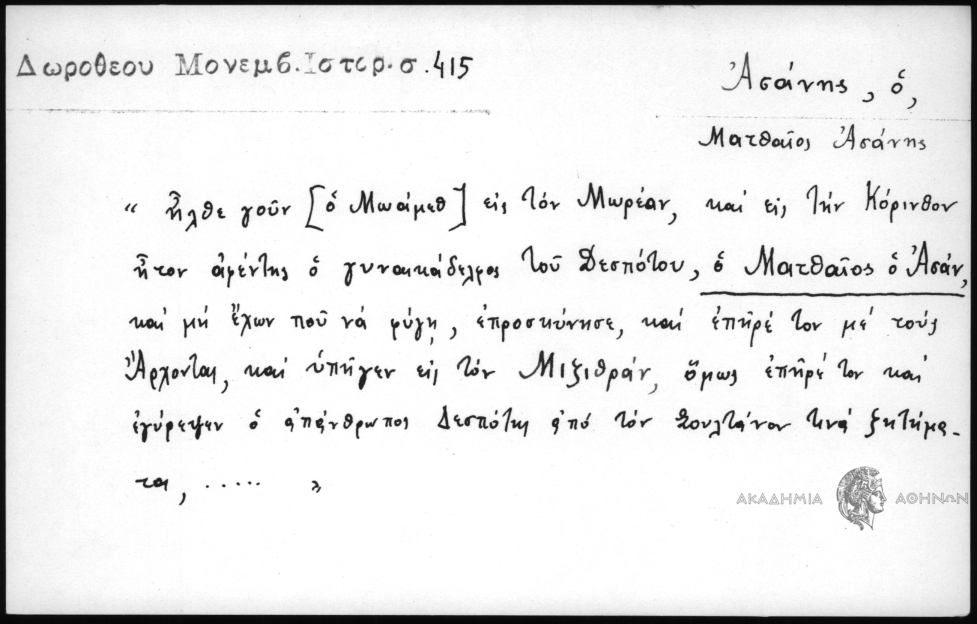 Δωροθεου Μονεμβ. Ιστορ. σ. 415
Ἀσάνης, ὁ,
Ματθαῖος Ἀσάνης
“ ἦλθε γοῦν [ὁ Μωάμεθ] εἰς τόν Μωρέαν, καί εἰς τήν Κόρινθον
ἦτον ἀφέντης ὁ γυναικάδελφος τοῦ Δεσπότου, ὁ Ματθαῖος ὁ Ἀσάν,
καί μή ἔχων ποῦ νά φύγῃ, ἐπροσκύνησε, καί ἐπῆρέ τον μέ τούς
Ἄρχοντας, καί ὑπῆγεν εἰς τόν Μιζιθρᾶν, ὅμως ἐπῆρέ τον καί
ἐγύρεψεν ὁ ἀπάνθρωπος Δεσπότης ἀπό τόν Σουλτάνον τινά ζητήμα-
τα, ..... ”
ΑΚΑΔΗΜΙΑ ΑΘΗΝΩΝ